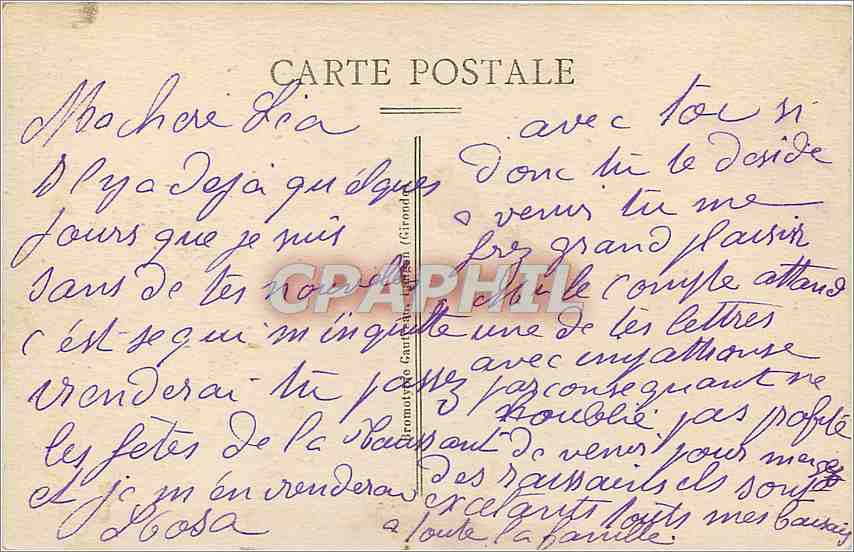 CARTE POSTALE
Ma chere Lia
Il y a deja quelques
jours que je suis
sans de tes nouvelle
c'est se qui m'inquitte
venderai tu passez
les fêtes de la Toussaint
et je m'en venderai
avec toi si
donc tu te deside
a venir tu me
frez grand plaisir
Mai le compte attand
une de tes lettres
avec
par consequant ne
n'oublié pas profité
de venir pour manger
des raissains ils sont
excelants touts mes baisais
a toute la famille.
Rosa
Cromotypie Gautreau, Langon (Gironde)
CPAPHIL